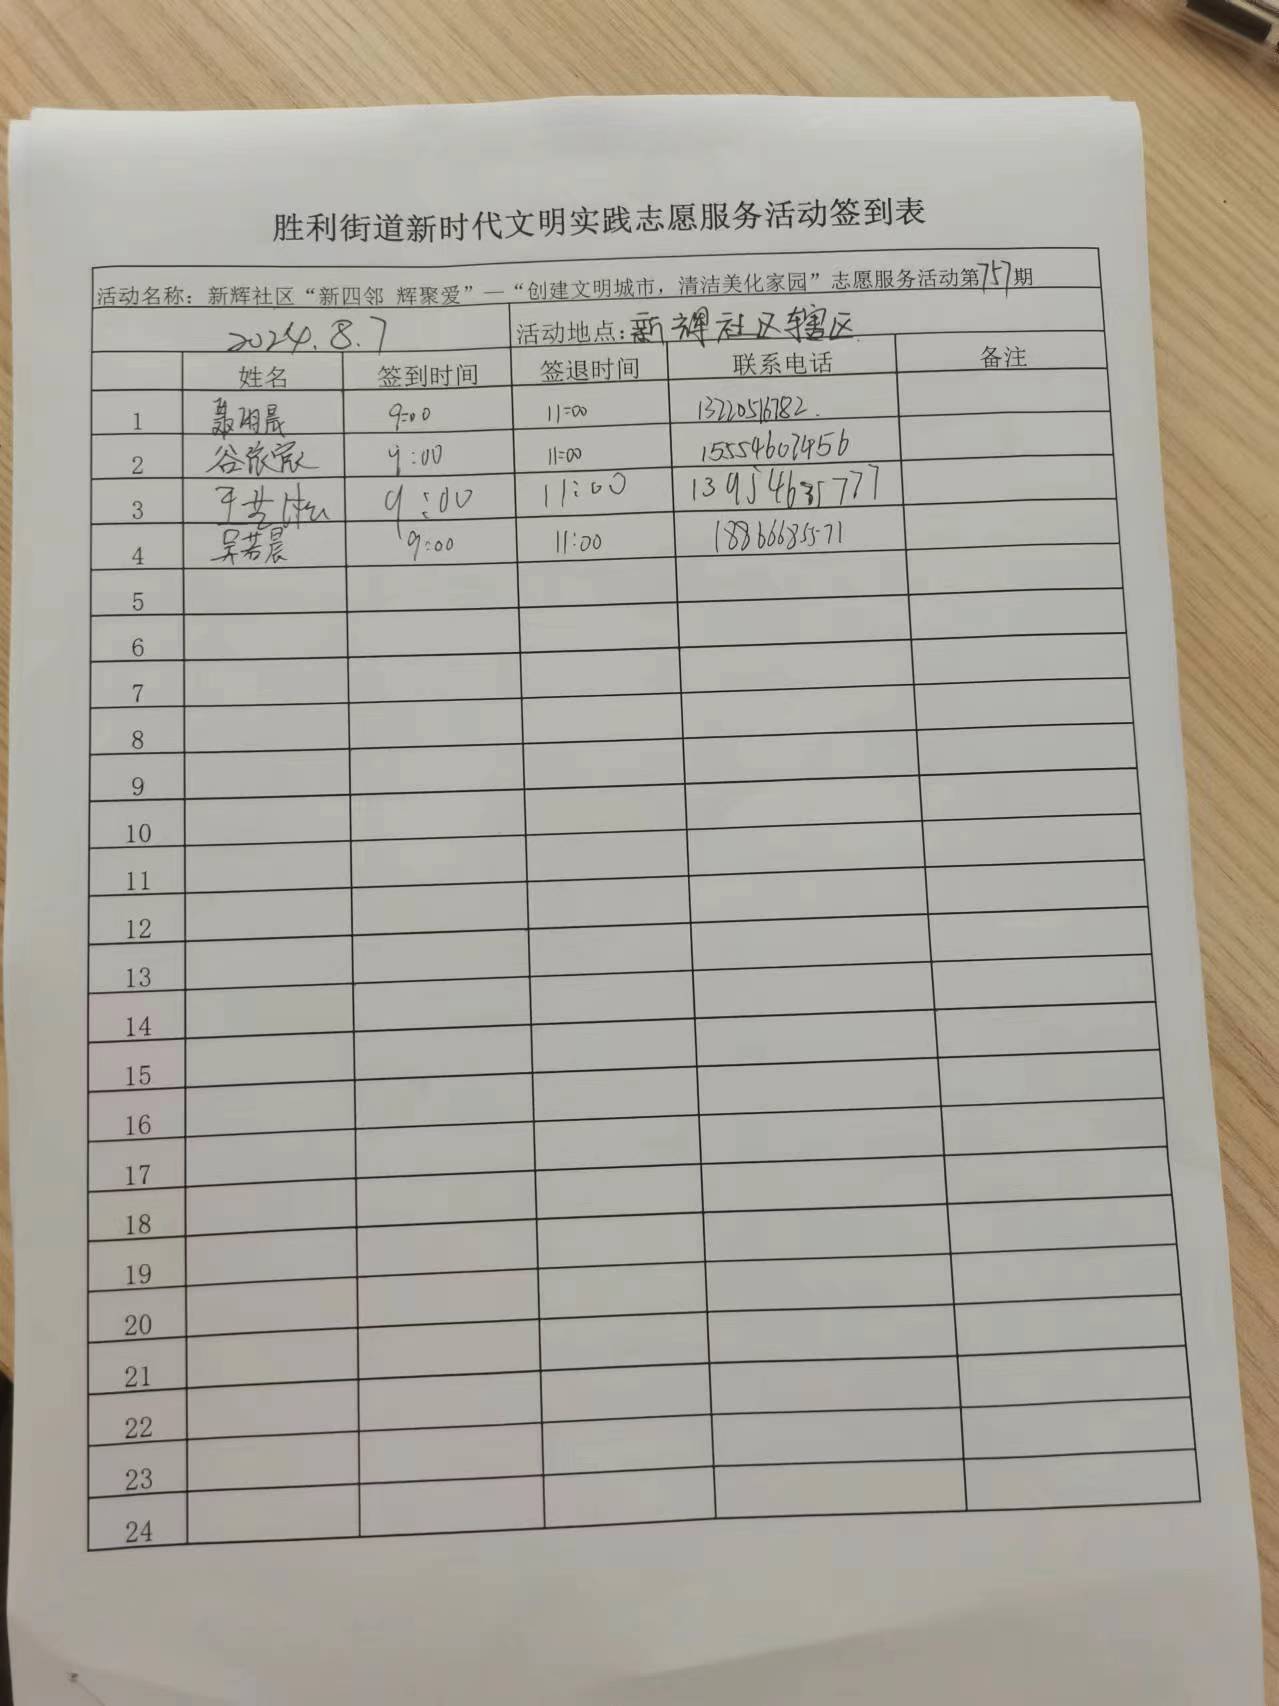 胜利街道新时代文明实践志愿服务活动签到表
活动名称：新辉社区“新四邻 辉聚爱”—“创建文明城市，清洁美化家园”志愿服务活动第757期
2024.8.7 活动地点：新辉社区辖区
姓名 签到时间 签退时间 联系电话 备注
1 聂明晨 9:00 11:00 13220516782.
2 9:00 11:00 15554607456
3 9:00 11:00 13954635777
4 吴若晨 9:00 11:00 18866685571
5
6
7
8
9
10
11
12
13
14
15
16
17
18
19
20
21
22
23
24